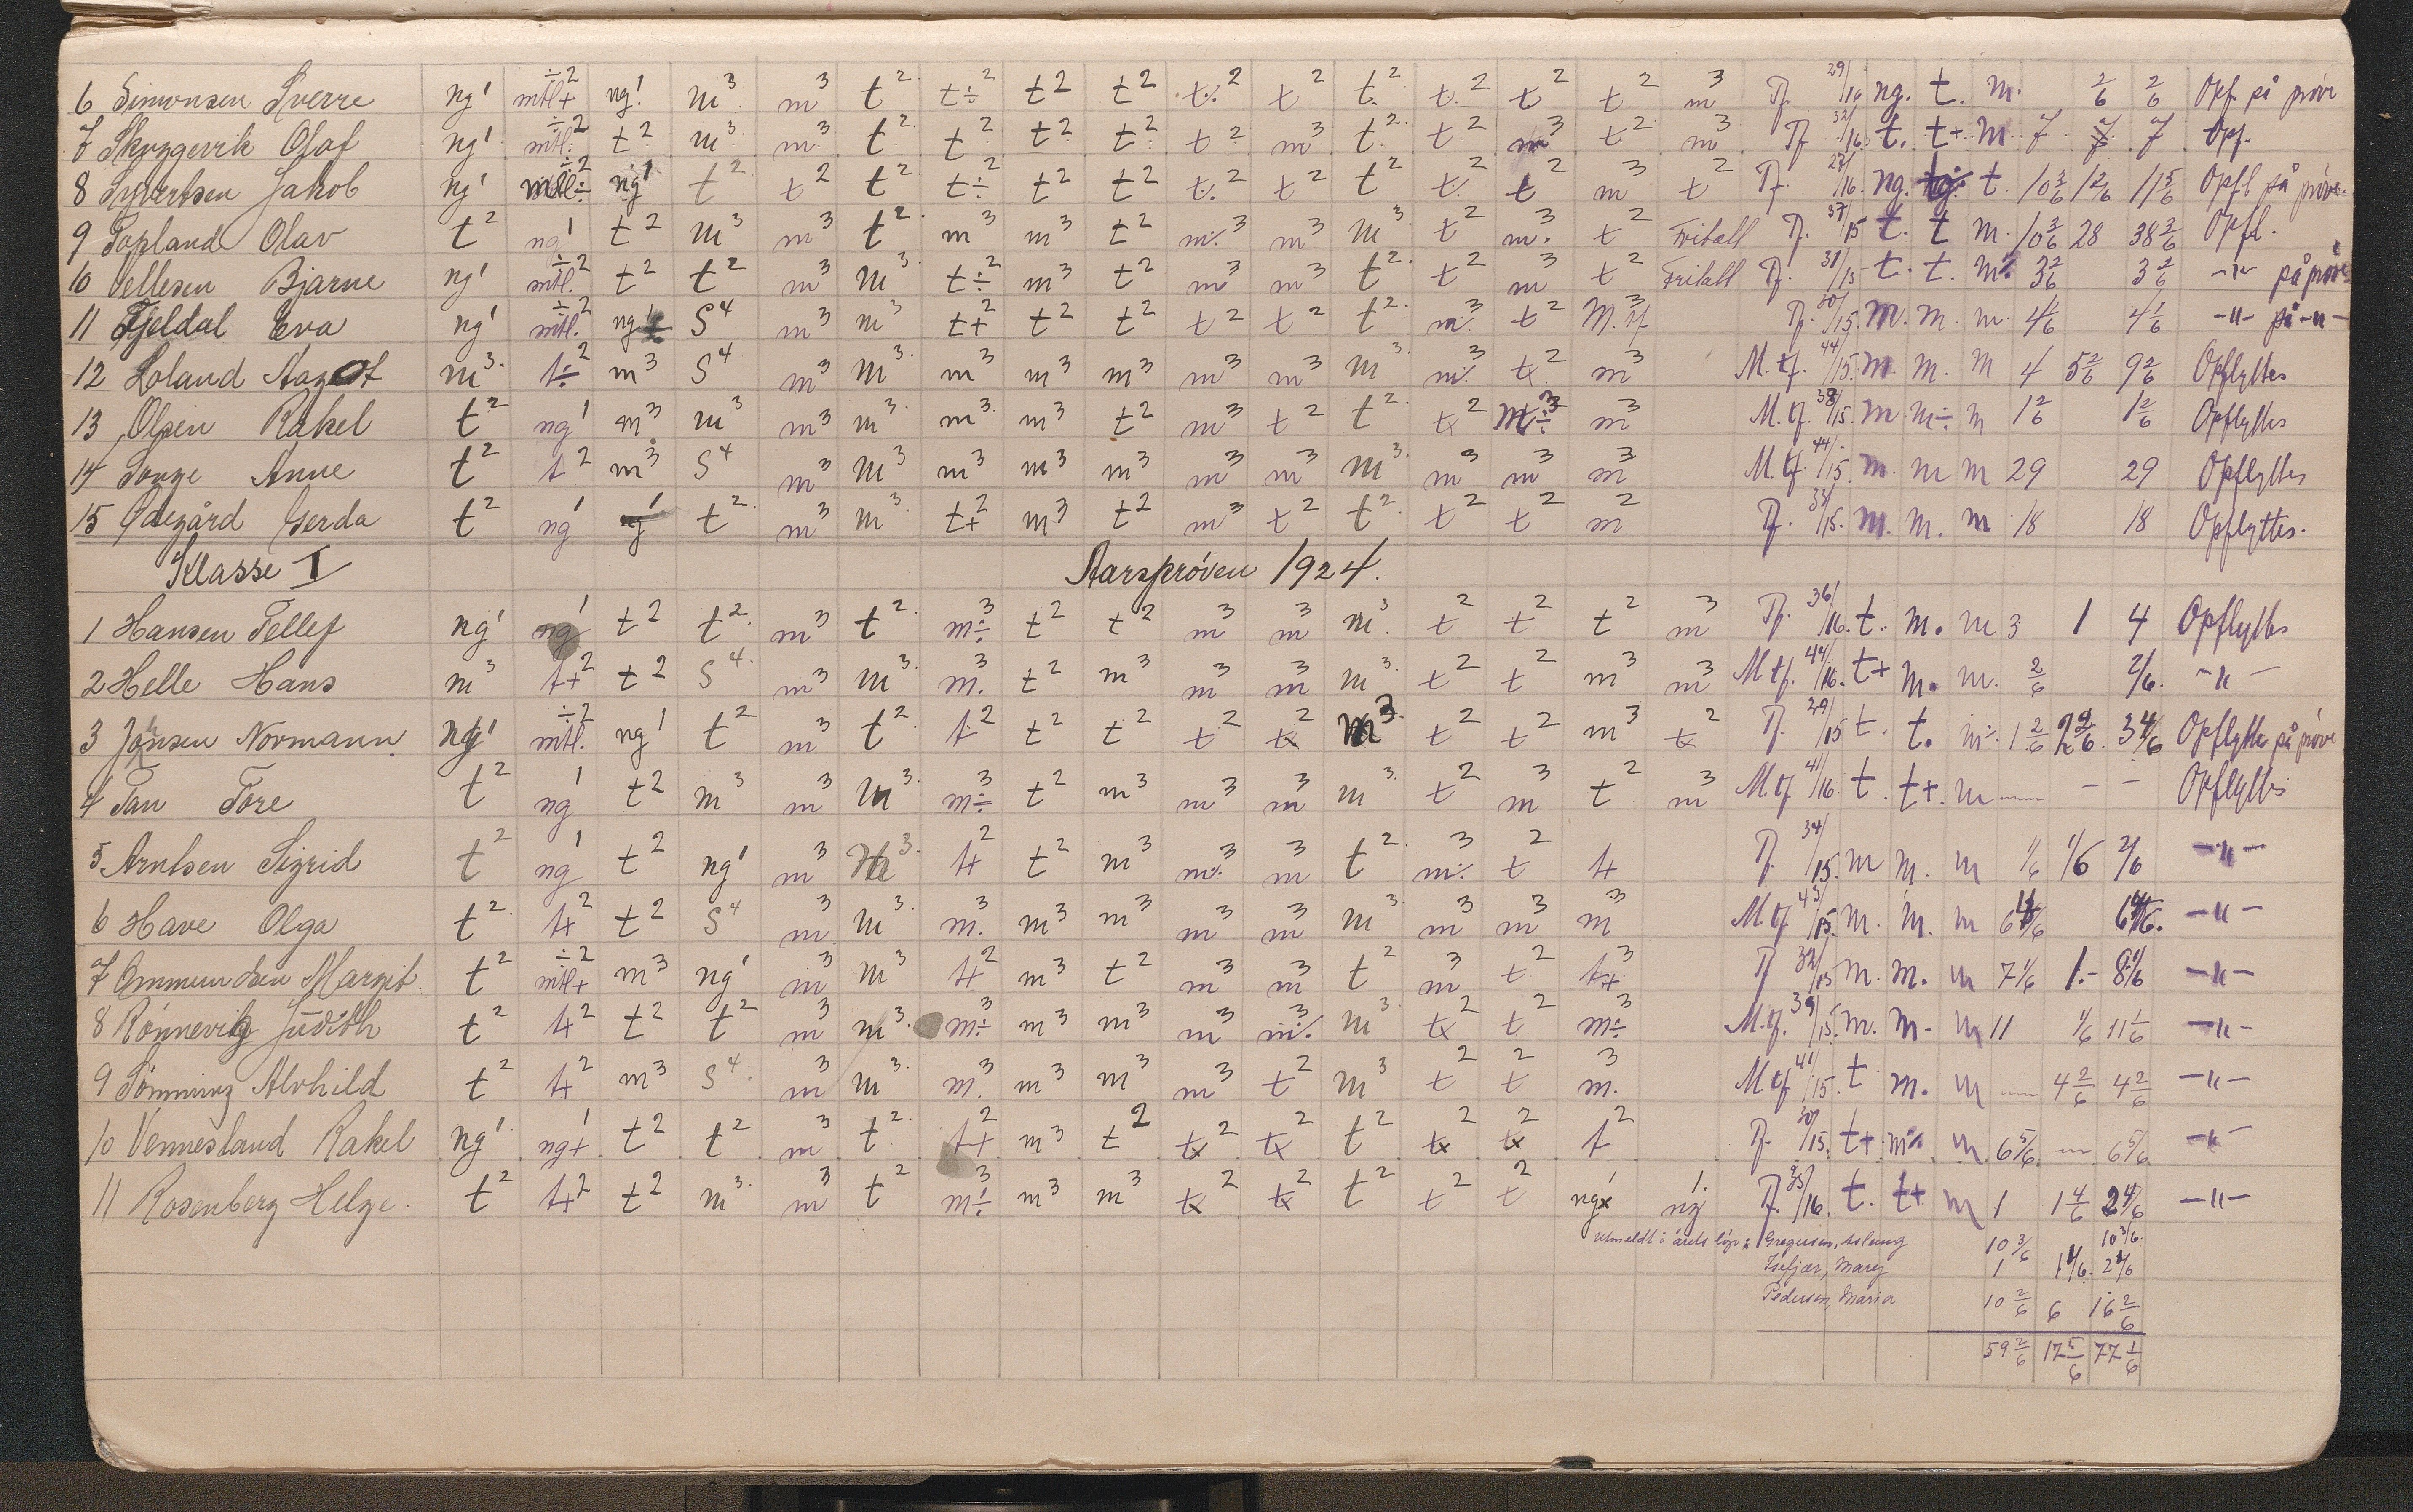 6 Simonsen Sverre ng¹ mtl+ ÷2 ng¹ m³ m³ t² t÷² t² t² t.² t² t.² t.² t² t² m³ Tf. 29/16 ng. t. m. 2/6 2/6 Opf. på prøve
7 Skyggevik Olaf ng¹ mtl. ÷2 t² m³ m³ t² t² t² t² t² m³ t² t² m³ t² m³ Tf 32/16 t. t+ m. 7 7 7 Opf.
8 Syvertsen Jakob ng¹ mtl÷ ÷2 ng¹ t² t² t² t÷² t² t² t.² t² t² t.² t² m³ t² Tf. 27/16. ng. t. 10 3/6 1 2/6 11 5/6 Opfl på prøve.
9 Topland Olav t² ng¹ t² m³ m³ t² m³ m³ t² m%³ m³ m³ t² m.³ t² Fritatt Tf. 37/15 t. t m. 10 2/6 28 38 2/6 Opfl.
10 Vellesen Bjarne ng¹ mtl. ÷2 t² t² m³ m³ t÷² m³ t² m³ m³ t² t² m³ t² Fritatt Tf. 31/15 t. t. m% 3 2/6 3 2/6 -"- på prøve
11 Fjeldal Eva ng¹ mtl. ÷2 ng¹ S⁴ m³ m³ t+² t² t² t² t² t² m%³ t² M.tf.³ Tf. 30/15. m. m. m. 4 1/6 4 1/6 -"- på -"-
12 Loland Aagot m³ t÷² m³ S⁴ m³ m³ m³ m³ m³ m³ m³ m³ m%³ tx² m³ M.tf. 44/15. m m. m 4 5 2/6 9 2/6 Opflyttes
13 Olsen Rakel t² ng¹ m³ m³ m³ m³ m³ m³ t² m³ t² t² tx² m÷³ m³ M.tf. 38/15. m m÷ m 1 2/6 1 2/6 Opflyttes
14 Songe Anne t² t² m³ S⁴ m³ m³ m³ m³ m³ m³ m³ m³ m³ m³ m³ M.tf. 44/15. m. m m 29 29 Opflyttes
15 Ødegård Gerda t² ng¹ ng¹ t² m³ m³ t+² m³ t² m³ t² t² t² t² m² Tf. 34/15. m. m. m 18 18 Opflyttes.
Klasse I Aarsprøven 1924.
1 Hansen Tellef ng¹ ng¹ t² t² m³ t² m÷³ t² t² m³ m³ m³ t² t² t² m³ Tf. 36/16. t. m. m 3 1 4 Opflyttes
2 Helle Hans m³ t+² t² S⁴ m³ m³ m.³ t² m³ m³ m³ m³ t² t² m³ m³ M tf. 44/16. t+ m. m. 2/6 2/6. -"-
3 Jansen Normann ng¹ mtl. ÷2 ng¹ t² m³ t² t² t² t² t² tx² m³ t² t² m³ tx² Tf. 29/15 t. t. m% 1 2/6 2 2/6. 3 4/6 Opflyttes på prøve
4 Tan Tore t² ng¹ t² m³ m³ m³ m÷³ t² m³ m³ m³ m³ t² m³ t² m³ M.tf 41/16. t. t+. m — - - Opflyttes
5 Arntsen Sigrid t² ng¹ t² ng¹ m³ m³ t+² t² m³ m%³ m³ t² m%³ t² t+ Tf. 34/15. m m. m 1/6 1/6 2/6 -"-
6 Have Olga t² t+² t² S⁴ m³ m³ m.³ m³ m³ m³ m³ m³ m³ m³ m³ M.tf 43/15. m. m. m 6 4/6 6 4/6. -"-
7 Ommundsen Margit. t² mtl+ ÷2 m³ ng¹ m³ m³ t+² m³ t² m³ m³ t² m³ t² t+³ Tf 32/15 m. m. m 7 1/6 1.- 8 1/6 -"-
8 Rønnevig Judith t² t+² t² t² m³ m³ m÷³ m³ m³ m³ m%³ m³ tx² t² m÷³ M.tf. 39/15. m. m. m 11 1/6 11 1/6 -"-
9 Sønning Alvhild t² t+² m³ S⁴ m³ m³ m.³ m³ m³ m³ t² m³ t² t² m.³ M tf 41/15. t m. m — 4 2/6 4 2/6 -"-
10 Vennesland Rakel ng¹ ng+¹ t² t² m³ t² t+² m³ t² tx² tx² t² tx² tx² t² Tf. 30/15. t+ m% m 6 5/6. — 6 5/6. -"-
11 Rosenberg Helge. t² t+² t² m³ m³ t² m÷³ m³ m³ tx² tx² t² t² t² ngx¹ ng¹ Tf. 35/16. t. t+ m 1 1 4/6 2 4/6 -"-
Utmeldt i årets løp: Gregersen, Aslaug 10 3/6 10 3/6.
Isefjær, Mary 1 1 4/6. 2 4/6
Pedersen, Maria 10 2/6 6 16 2/6
59 2/6 17 5/6 77 1/6